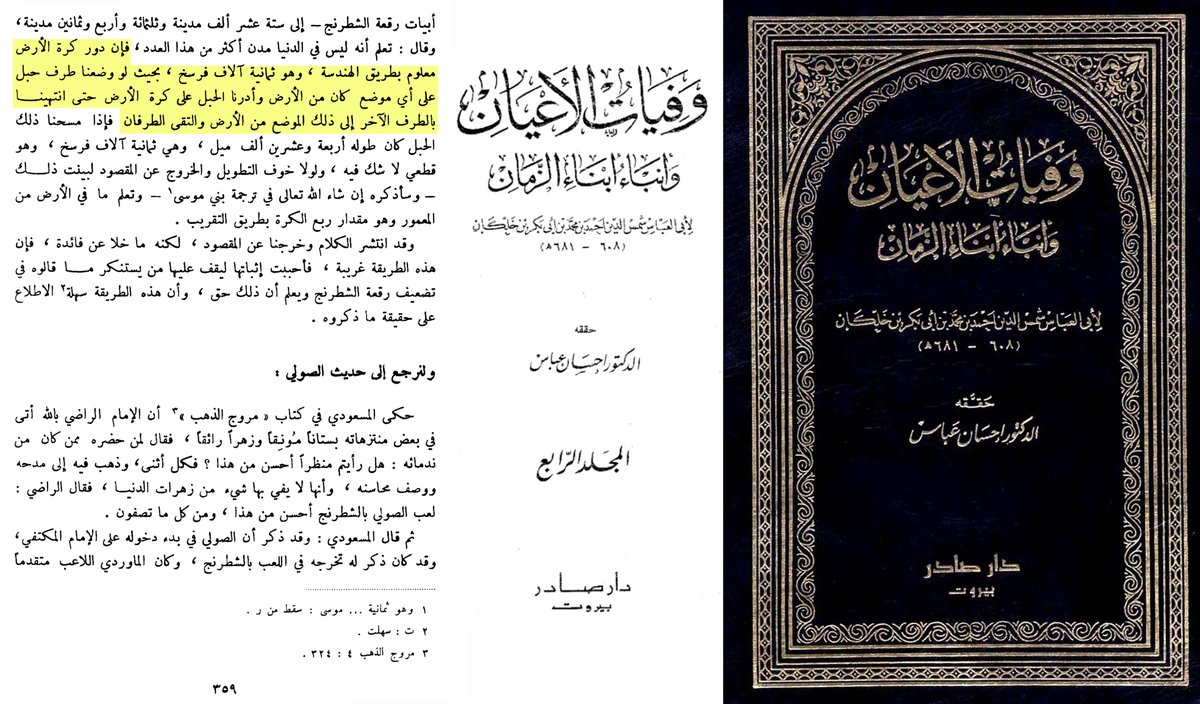 أبيات رقعة الشطرنج – إلى ستة عشر ألف مدينة وثلثائة وأربع وثمانين مدينة،
وقال : تعلم أنه ليس في الدنيا مدن أكثر من هذا العدد، فإن دور كرة الأرض
معلوم بطريق الهندسة ، وهو ثمانية آلاف فرسخ ، بحيث لو وضعنا طرف حبل
على أي موضع كان من الأرض وأدرنا الحبل على كرة الأرض حتى انتهينا
بالطرف الآخر إلى ذلك الموضع من الأرض والتقى الطرفان فإذا مسحنا ذلك
الحبل كان طوله أربعة وعشرين ألف ميل ، وهي ثمانية آلاف فرسخ ، وهو
قطعي لا شك فيه ، ولولا خوف التطويل والخروج عن المقصود لبينت ذلك
– وسأذكره إن شاء الله تعالى في ترجمة بني موسى١ – وتعلم ما في الأرض من
المعمور وهو مقدار ربع الكرة بطريق التقريب .
وقد انتشر الكلام وخرجنا عن المقصود ، لكنه ما خلا عن فائدة ، فإن
هذه الطريقة غريبة ، فأحببت إثباتها ليقف عليها من يستنكر ما قالوه في
تضعيف رقعة الشطرنج ويعلم أن ذلك حق ، وأن هذه الطريقة سهلة٢ الاطلاع
على حقيقة ما ذكروه .
ولنرجع إلى حديث الصولي :
حكى المسعودي في كتاب « مروج الذهب »٣ أن الإمام الراضي بالله أتى
في بعض منتزهاته بستاناً مُونِقاً وزهراً رائقاً ، فقال لمن حضره ممن كان من
ندمائه : هل رأيتم منظراً أحسن من هذا ؟ فكل أثنى، وذهب فيه إلى مدحه
ووصف محاسنه ، وأنها لا يفي بها شيء من زهرات الدنيا ، فقال الراضي :
لعب الصولي بالشطرنج أحسن من هذا ، ومن كل ما تصفون .
ثم قال المسعودي : وقد ذكر أن الصولي في بدء دخوله على الإمام المكتفي،
وقد كان ذكر له تخرجه في اللعب بالشطرنج ، وكان الماوردي اللاعب متقدماً
١ وهو ثمانية ... موسى : سقط من ر .
٢ ت : سهلت .
٣ مروج الذهب ٤ : ٣٢٤ .
٣٥٩
وفيات الأعيان
وأنباء أبناء الزمان
لأبي العباس شمس الدين احمد بن محمد بن أبي بكر بن خلكان
(٦٠٨ – ٦٨١ هـ)
حققه
الدكتور احسان عباس
المجلد الرابع
دار صادر
بيروت
وفيات الأعيان
وأنباء أبناء الزمان
لأبي العباس شمس الدين احمد بن محمد بن أبي بكر بن خلكان
(٦٠٨ – ٦٨١ هـ)
حققه
الدكتور احسان عباس
دار صادر
بيروت